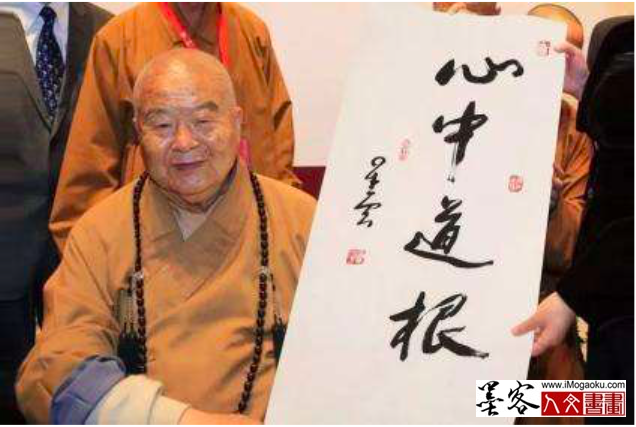 心中道根
星雲
墨客
www.iMogaoku.com
人文書畫